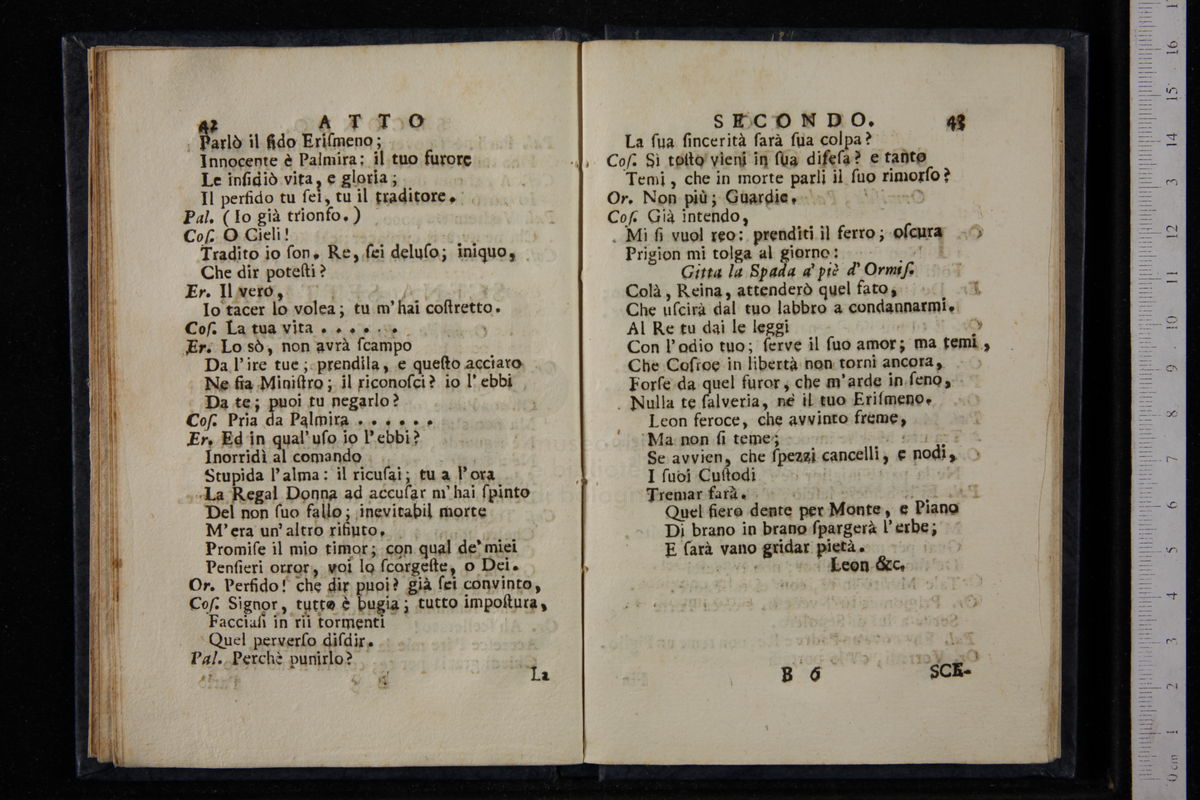 42 ATTO
Parlò il fido Eriſmeno;
Innocente è Palmira: il tuo furore
Le inſidiò vita, e gloria;
Il perfido tu ſei, tu il traditore.
Pal. (Io già trionfo.)
Coſ. O Cieli!
Tradito io ſon. Re, ſei deluſo; iniquo,
Che dir poteſti?
Er. Il vero,
Io tacer lo volea; tu m'hai coſtretto.
Coſ. La tua vita . . . . . .
Er. Lo sò, non avrà ſcampo
Da l'ire tue; prendila, e queſto acciaro
Ne ſia Miniſtro; il riconoſci? io l'ebbi
Da te; puoi tu negarlo?
Coſ. Pria da Palmira . . . . . .
Er. Ed in qual'uſo io l'ebbi?
Inorridì al comando
Stupida l'alma: il ricuſai; tu a l'ora
La Regal Donna ad accuſar m'hai ſpinto
Del non ſuo fallo; inevitabil morte
M'era un'altro rifiuto.
Promiſe il mio timor; con qual de'miei
Penſieri orror, voi lo ſcorgeſte, o Dei.
Or. Perfido! che dir puoi? già ſei convinto,
Coſ. Signor, tutto è bugia; tutto impoſtura,
Facciaſi in rii tormenti
Quel perverſo diſdir.
Pal. Perchè punirlo?
La
SECONDO. 43
La ſua ſincerità ſarà ſua colpa?
Coſ. Sì toſto vieni in ſua difeſa? e tanto
Temi, che in morte parli il ſuo rimorſo?
Or. Non più; Guardie.
Coſ. Già intendo,
Mi ſi vuol reo: prenditi il ferro; oſcura
Prigion mi tolga al giorno:
Gitta la Spada a' piè d'Ormiſ.
Colà, Reina, attenderò quel fato,
Che uſcirà dal tuo labbro a condannarmi.
Al Re tu dai le leggi
Con l'odio tuo; ſerve il ſuo amor; ma temi,
Che Coſroe in libertà non torni ancora,
Forſe da quel furor, che m'arde in ſeno,
Nulla te ſalveria, nè il tuo Eriſmeno.
Leon feroce, che avvinto freme,
Ma non ſi teme;
Se avvien, che ſpezzi cancelli, e nodi,
I ſuoi Cuſtodi
Tremar farà.
Quel fiero dente per Monte, e Piano
Di brano in brano ſpargerà l'erbe;
E ſarà vano gridar pietà.
Leon &c.
B 6 SCE-